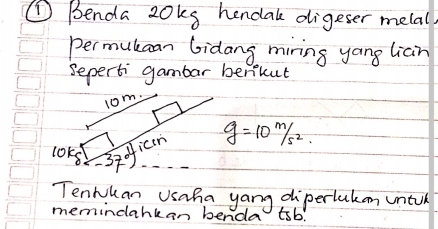 ① Benda 20kg hendak digeser melal
permukaan bidang miring yang licin
seperti gambar berikut
10 m.
licin
10kg
37°
g = 10 m/s².
Tentukan usaha yang diperlukan untuk
memindahkan benda tsb.